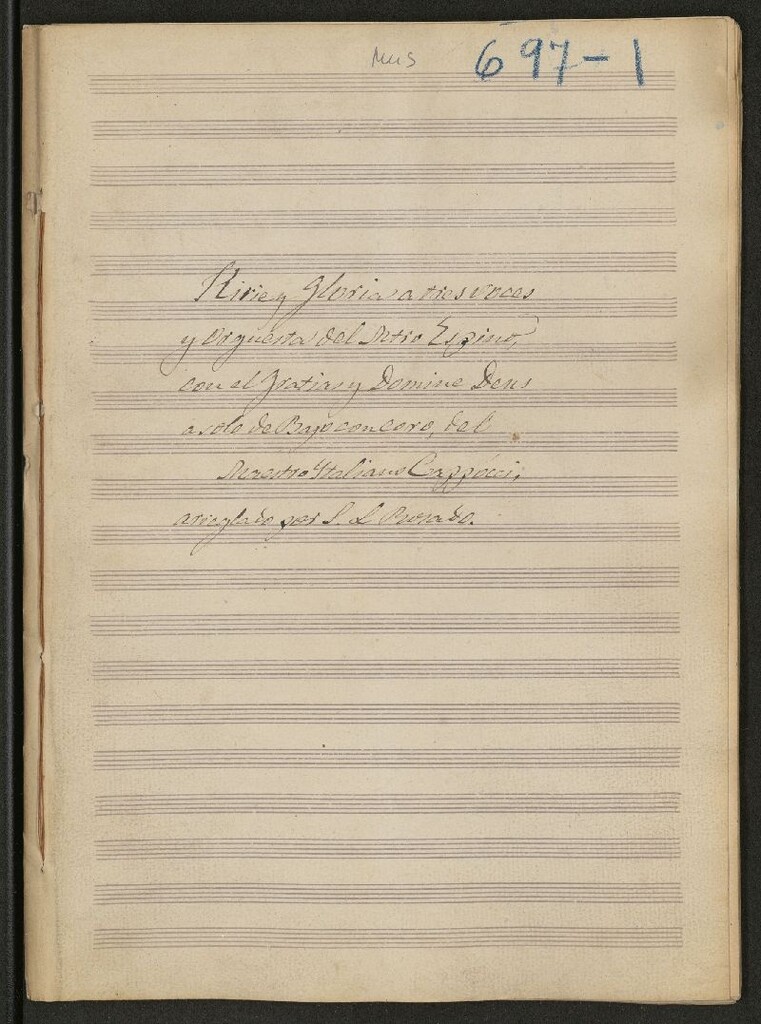 Mus 697-1
Kirie y Gloria a tres voces
y orquesta del Mtro Espino,
con el Gratias y Domine Deus
a solo de Bajo con coro, del
Maestro Italiano Cappocci,
arreglado por S. L. Rosado.